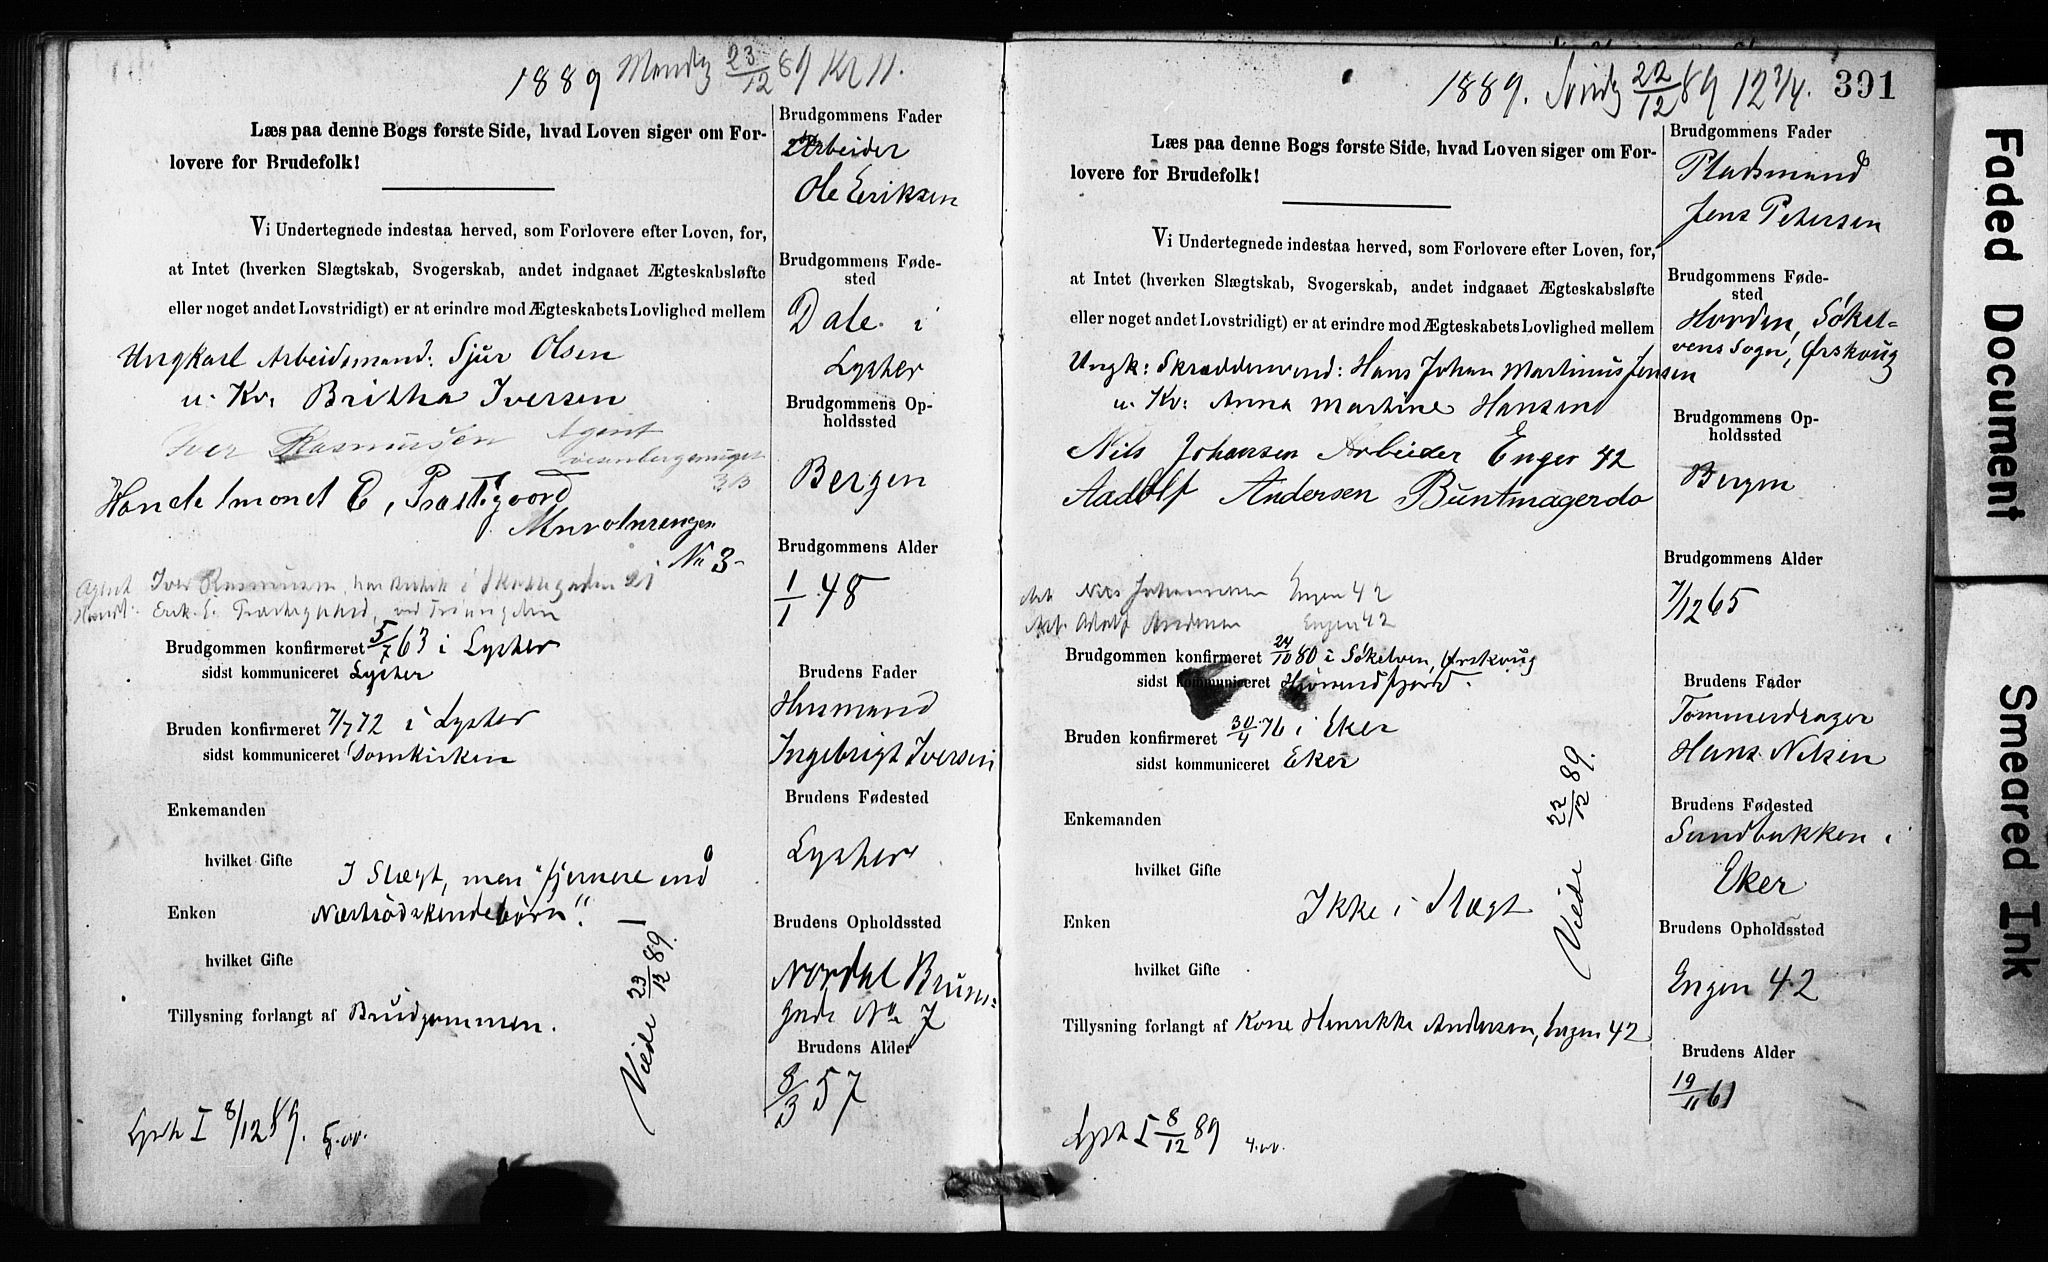 1889 Mandg 23/12 89 Kl 11.
Læs paa denne Bogs første Side, hvad Loven siger om For-
lovere for Brudefolk!
Vi Undertegnede indestaa herved, som Forlovere efter Loven, for,
at Intet (hverken Slægtskab, Svogerskab, andet indgaaet Ægteskabsløfte
eller noget andet Lovstridigt) er at erindre mod Ægteskabets Lovlighed mellem
Ungkarl Arbeidsmand: Sjur Olsen
u. Kv. Britha Iversen
Iver Rasmussen Agent
Handelsmand E. Præstegaard
No 3
Agent Iver Rasmussen
Handl: Erik E. Præstegaard, ved
Brudgommen konfirmeret 5/7 63 i Lyster
sidst kommuniceret Lyster
Bruden konfirmeret 7/7 72 i Lyster
sidst kommuniceret Domkirken
Enkemanden
hvilket Gifte
I Slægt, men "fjernere end
Enken Næstsødskendebørn".
hvilket Gifte
Tillysning forlangt af Brudgommen.
Viede 23/12 89.
Lyst I 8/12 89. 5.00.
Brudgommens Fader
Arbeider
Ole Eriksen
Brudgommens Føde-
sted
Dale i
Lyster
Brudgommens Op-
holdssted
Bergen
Brudgommens Alder
1/1 48
Brudens Fader
Husmand
Ingebrigt Iversen
Brudens Fødested
Lyster
Brudens Opholdssted
Nordal Bruns-
gade No 7
Brudens Alder
8/3 57
1889. Søndg 22/12 89 12 3/4. 391
Læs paa denne Bogs første Side, hvad Loven siger om For-
lovere for Brudefolk!
Vi Undertegnede indestaa herved, som Forlovere efter Loven, for,
at Intet (hverken Slægtskab, Svogerskab, andet indgaaet Ægteskabsløfte
eller noget andet Lovstridigt) er at erindre mod Ægteskabets Lovlighed mellem
Ungk: Skræddersvend: Hans Johan Martinus Jensen
u. Kv: Anna Martine Hansen
Nils Johansen Arbeider Enger 42
Aadolf Andersen Buntmager do
Arb Nils Johannesen Engen 42
Adolf Andersen Engen 42
Brudgommen konfirmeret 24/10 80 i Søkelven, Ørskoug
sidst kommuniceret Hjørendfjord.
Bruden konfirmeret 30/4 76 i Eker
sidst kommuniceret Eker
Enkemanden
hvilket Gifte
Enken Ikke i Slægt
hvilket Gifte
Tillysning forlangt af Kone Henrikke Andersen, Engen 42
Viede 22/12 89.
Lyst I 8/12 89 4.00.
Brudgommens Fader
Pladsmand
Jens Petersen
Brudgommens Føde-
sted
Hovden, Søkel-
vens Sogn, Ørskoug
Brudgommens Op-
holdssted
Bergen
Brudgommens Alder
7/12 65
Brudens Fader
Tømmerdrager
Hans Nilsen
Brudens Fødested
Sandbakken i
Eker
Brudens Opholdssted
Engen 42
Brudens Alder
19/11 61
Faded Document
Smeared Ink